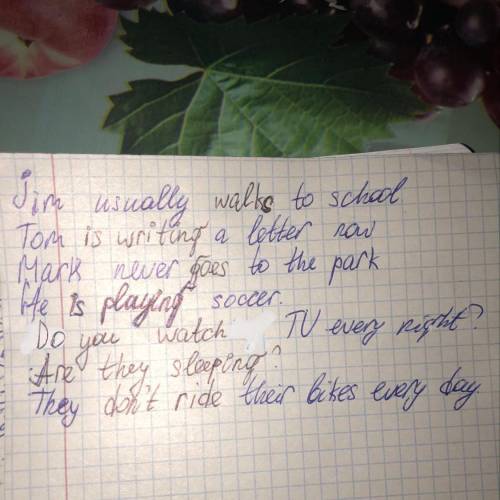 Jim usually walks to school
Tom is writing a letter now
Mark never goes to the park
He is playing soccer.
Do you watch TV every night?
Are they sleeping?
They don't ride their bikes every day.